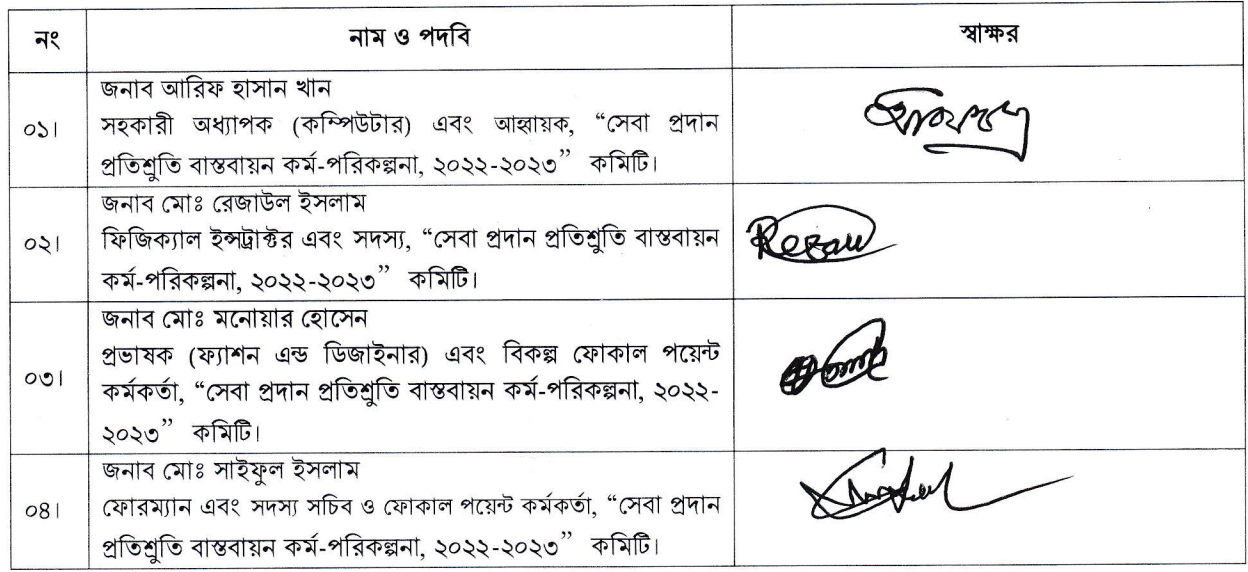 নং নাম ও পদবি স্বাক্ষর
জনাব আরিফ হাসান খান
০১। সহকারী অধ্যাপক (কম্পিউটার) এবং আহ্বায়ক, “সেবা প্রদান
প্রতিশ্রুতি বাস্তবায়ন কর্ম-পরিকল্পনা, ২০২২-২০২৩” কমিটি।
জনাব মোঃ রেজাউল ইসলাম
০২। ফিজিক্যাল ইন্সট্রাক্টর এবং সদস্য, “সেবা প্রদান প্রতিশ্রুতি বাস্তবায়ন
কর্ম-পরিকল্পনা, ২০২২-২০২৩” কমিটি।
জনাব মোঃ মনোয়ার হোসেন
প্রভাষক (ফ্যাশন এন্ড ডিজাইনার) এবং বিকল্প ফোকাল পয়েন্ট
০৩। কর্মকর্তা, “সেবা প্রদান প্রতিশ্রুতি বাস্তবায়ন কর্ম-পরিকল্পনা, ২০২২-
২০২৩” কমিটি।
জনাব মোঃ সাইফুল ইসলাম
০৪। ফোরম্যান এবং সদস্য সচিব ও ফোকাল পয়েন্ট কর্মকর্তা, “সেবা প্রদান
প্রতিশ্রুতি বাস্তবায়ন কর্ম-পরিকল্পনা, ২০২২-২০২৩” কমিটি।